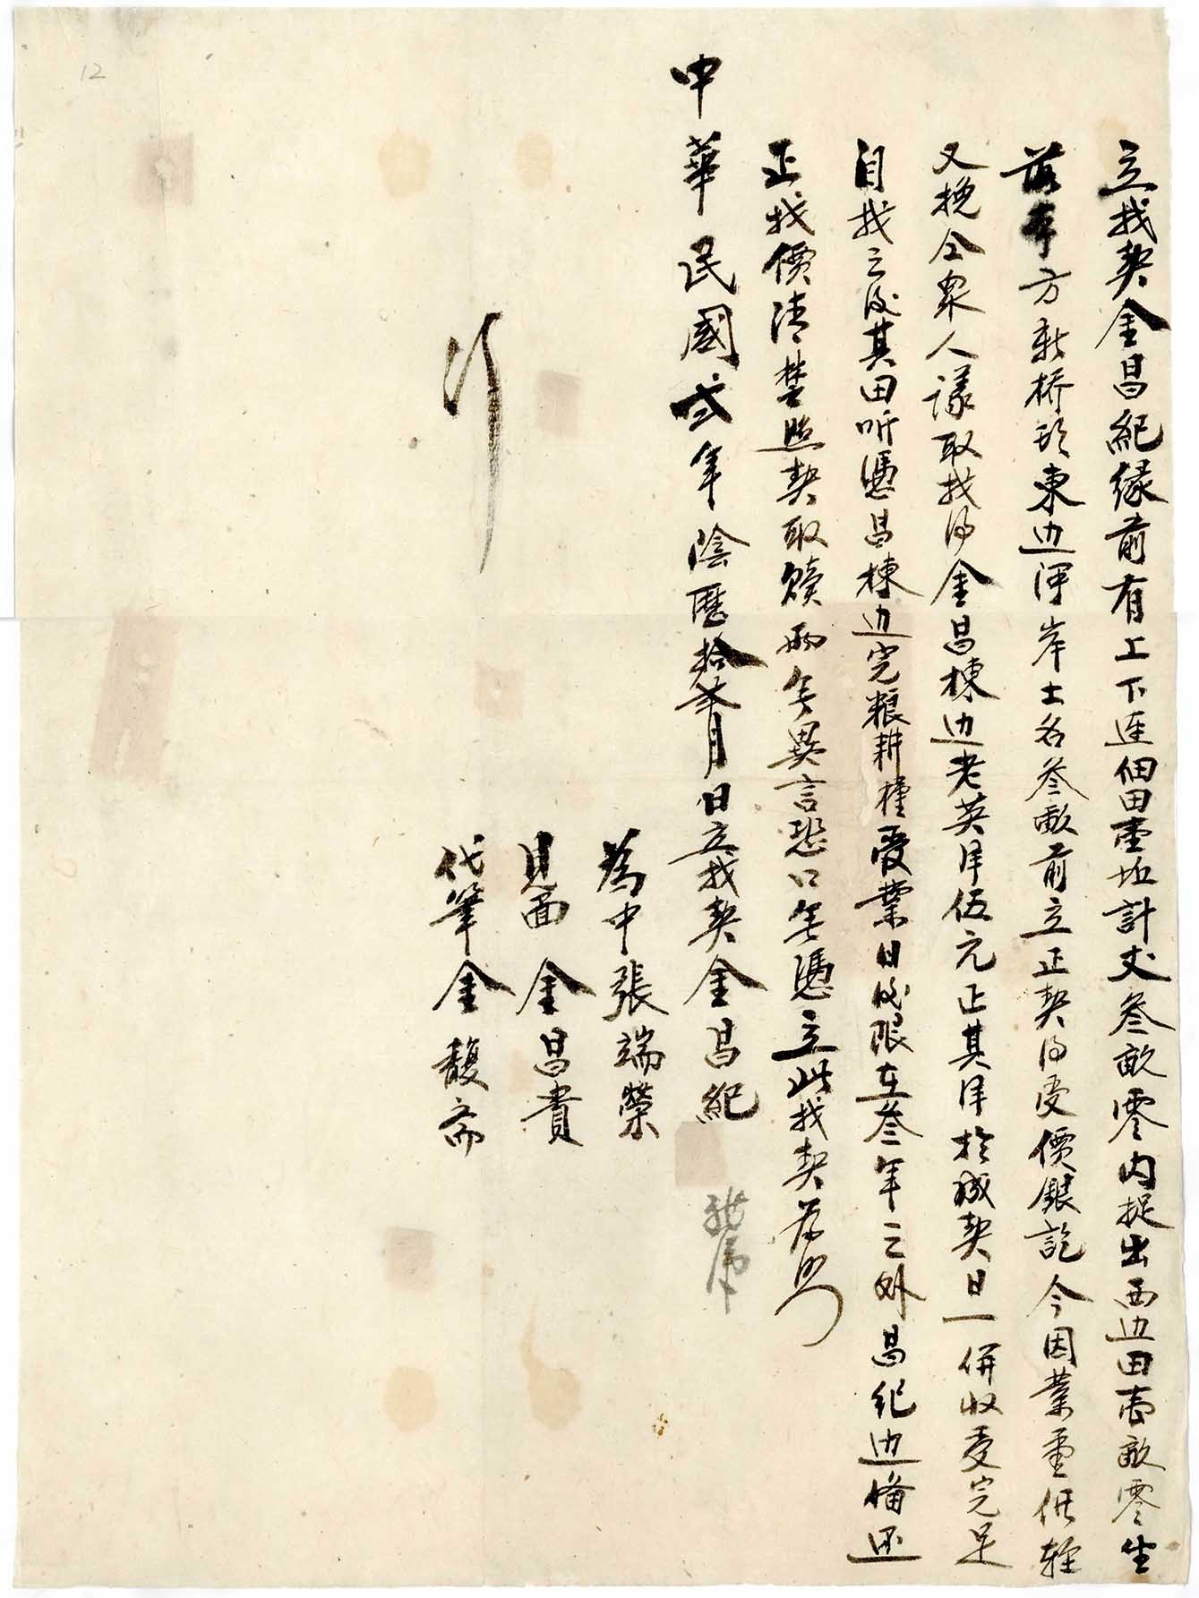 立找契金昌紀緣前有上下連佃田壹坵計丈叁畝零內捉出西边田壹畝零坐
落本方新橋頭東边河岸土名叁畝前立正契得受價銀訖今因業重價輕
又挽仝眾人議取找得金昌棟边老英洋伍元正其洋於成契日一併收受完足
自找之後其田听憑昌棟边完粮耕種受業日後限在叁年之外昌紀边備還
正找價清楚照契取贖兩無異言恐口無憑立此找契存照
中華民國弍年陰曆拾弍月 日立找契金昌紀
為中張端榮
見面金昌貴
代筆金馥齋
行
12